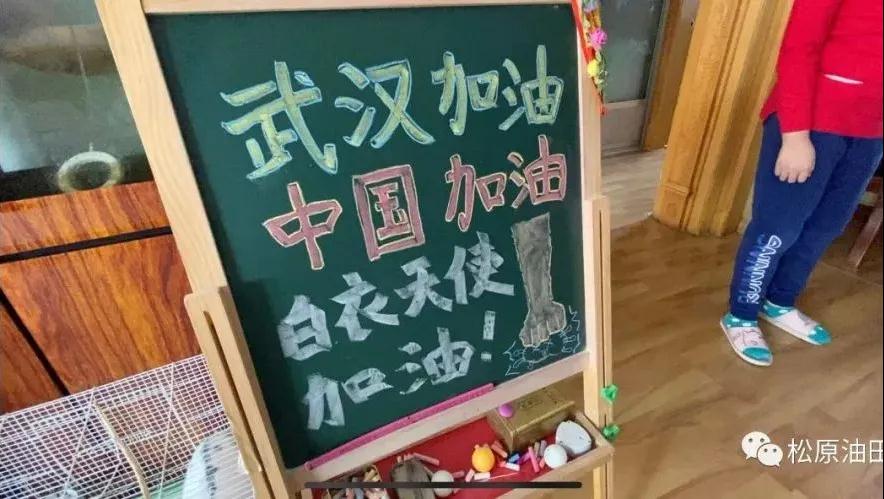 武汉加油
中国加油
白衣天使
加油!
松原油田